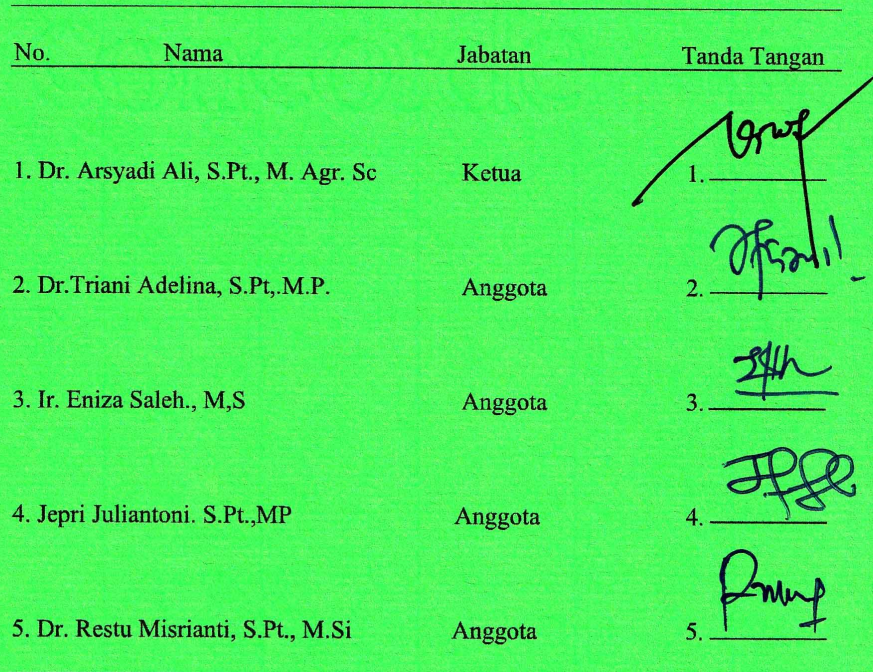 No. Nama Jabatan Tanda Tangan
1. Dr. Arsyadi Ali, S.Pt., M. Agr. Sc Ketua 1.
2. Dr.Triani Adelina, S.Pt,.M.P. Anggota 2.
3. Ir. Eniza Saleh., M,S Anggota 3.
4. Jepri Juliantoni. S.Pt.,MP Anggota 4.
5. Dr. Restu Misrianti, S.Pt., M.Si Anggota 5.